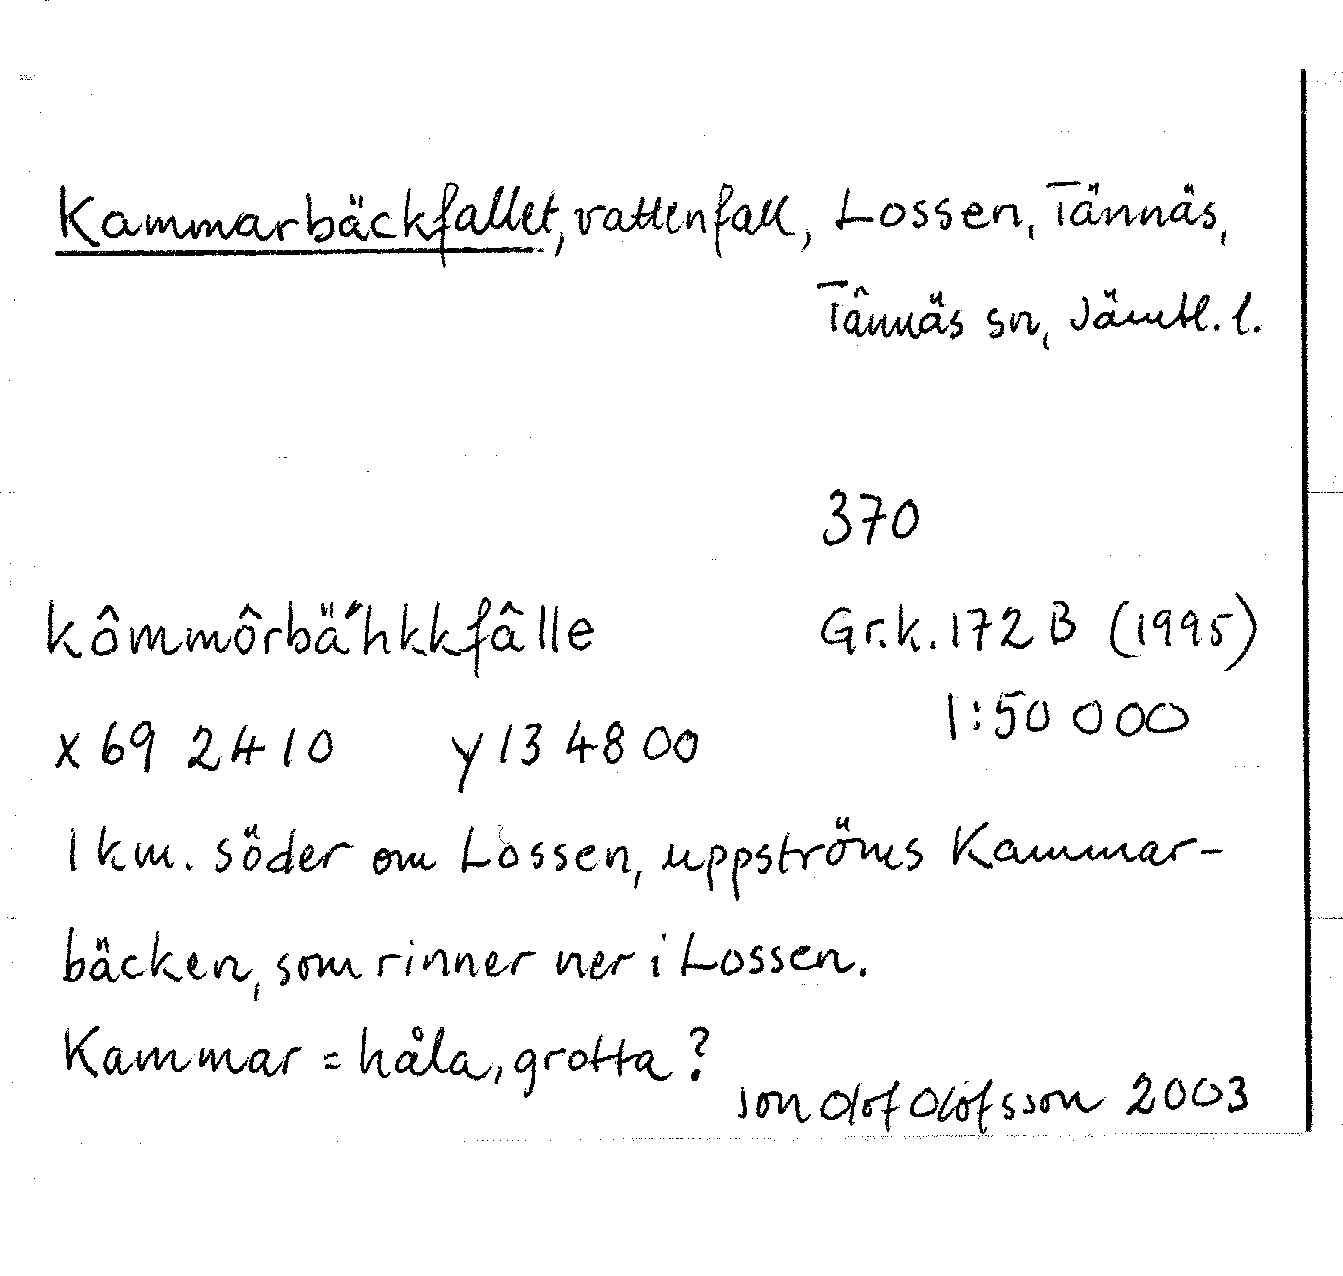 Kammarbäckfallet, vattenfall, Lossen, Tännäs,
Tännäs sn, Jämtl. l.
370
kômmôrbä́hkkfâlle
Gr.k. 172 B (1995)
1:50 000
x 69 2410 y 13 4800
1 km. söder om Lossen, uppströms Kammar-
bäcken, som rinner ner i Lossen.
Kammar = håla, grotta?
Jon Olof Olofsson 2003